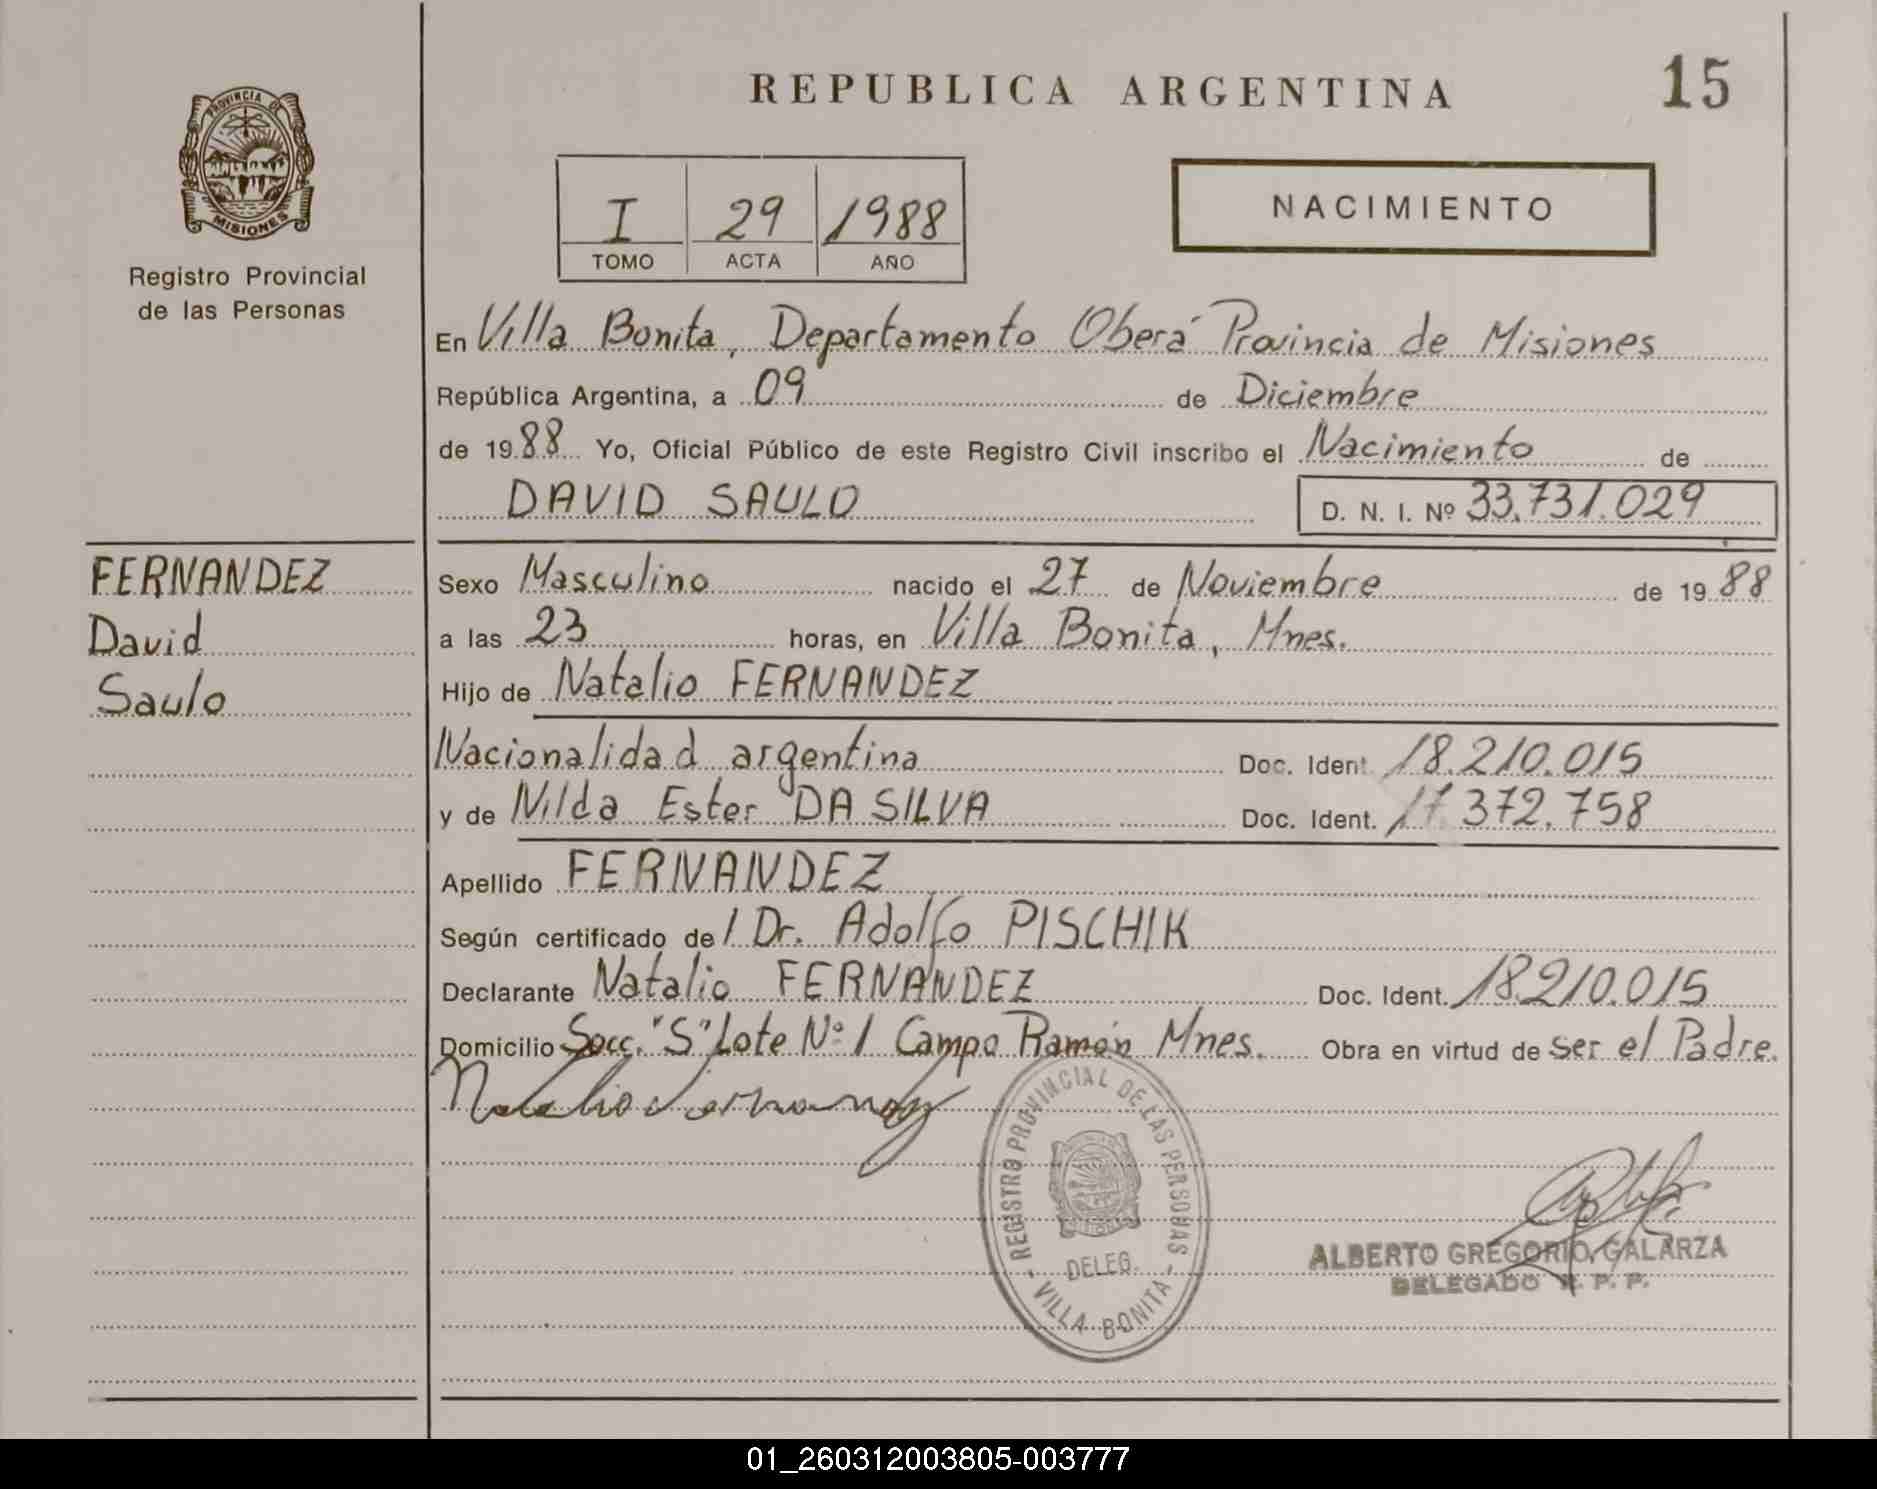 REPUBLICA ARGENTINA
15
PROVINCIA DE
MISIONES
Registro Provincial
de las Personas
I 29 1988
TOMO ACTA AÑO
NACIMIENTO
En Villa Bonita, Departamento Oberá Provincia de Misiones
República Argentina, a 09 de Diciembre
de 1988 Yo, Oficial Público de este Registro Civil inscribo el Nacimiento de
DAVID SAULO D. N. I. Nº 33.731.029
FERNANDEZ
David
Saulo
Sexo Masculino nacido el 27 de Noviembre de 1988
a las 23 horas, en Villa Bonita, Mnes.
Hijo de Natalio FERNANDEZ
Nacionalidad argentina Doc. Ident. 18.210.015
y de Nilda Ester DA SILVA Doc. Ident. 17.372.758
Apellido FERNANDEZ
Según certificado de / Dr. Adolfo PISCHIK
Declarante Natalio FERNANDEZ Doc. Ident. 18.210.015
Domicilio Secc. "S" Lote Nº 1 Campo Ramón Mnes. Obra en virtud de ser el Padre.
Natalio Fernandez
REGISTRO PROVINCIAL DE LAS PERSONAS
DELEG.
- VILLA BONITA -
ALBERTO GREGORIO GALARZA
DELEGADO R. P. P.
01_260312003805-003777